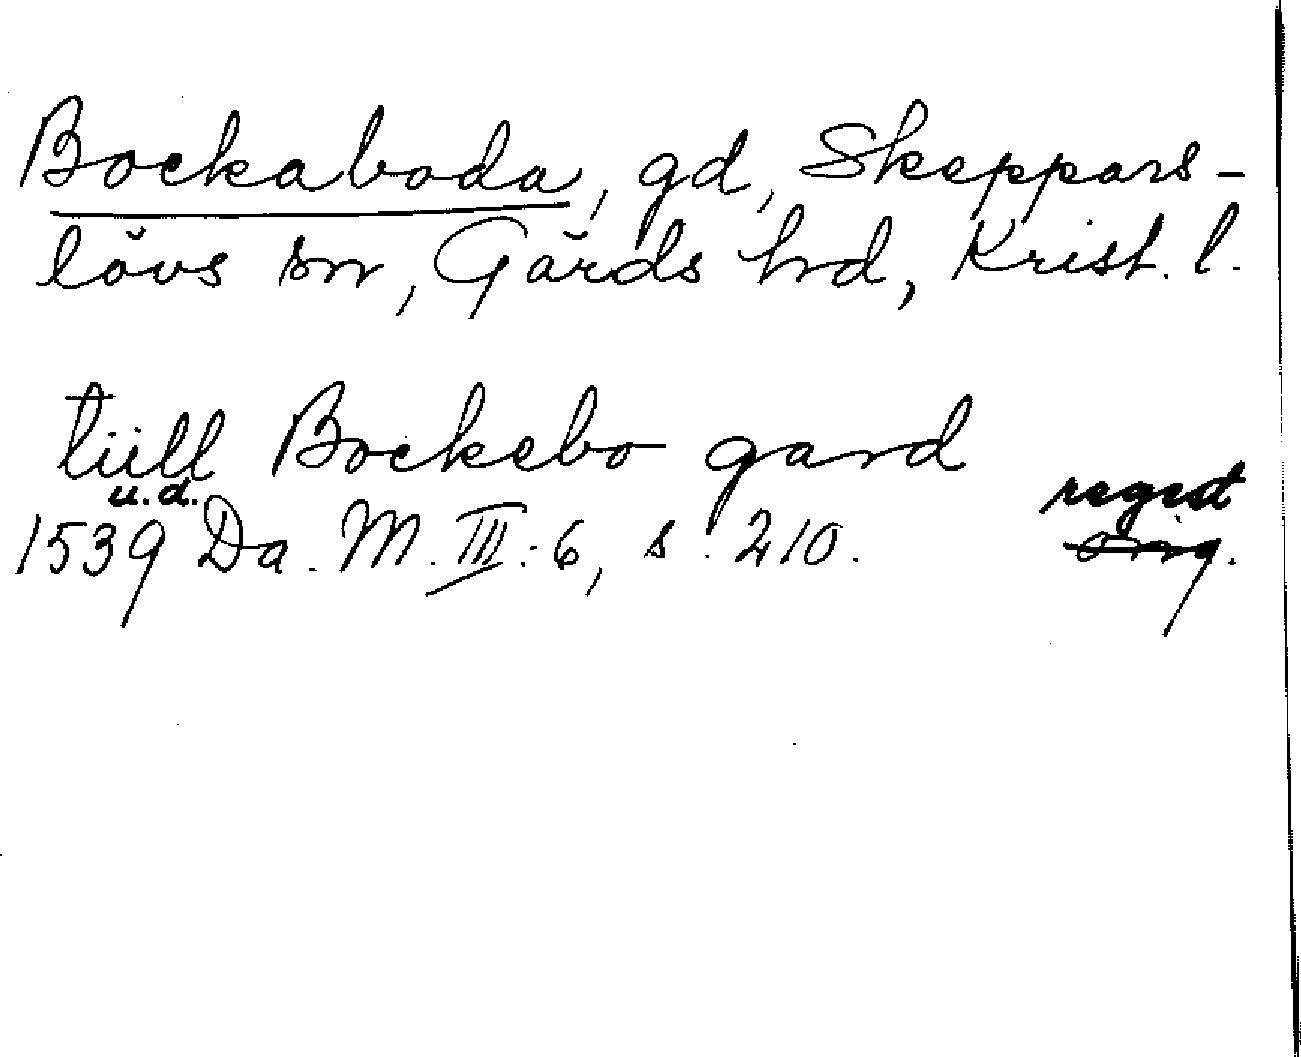 Bockaboda, gd, Skeppars-
lövs sn, Gärds hd, Krist. l.
tiill Bockebo gard
u.d.
regest
1539 Da. M. III: 6, s. 210.
orig.